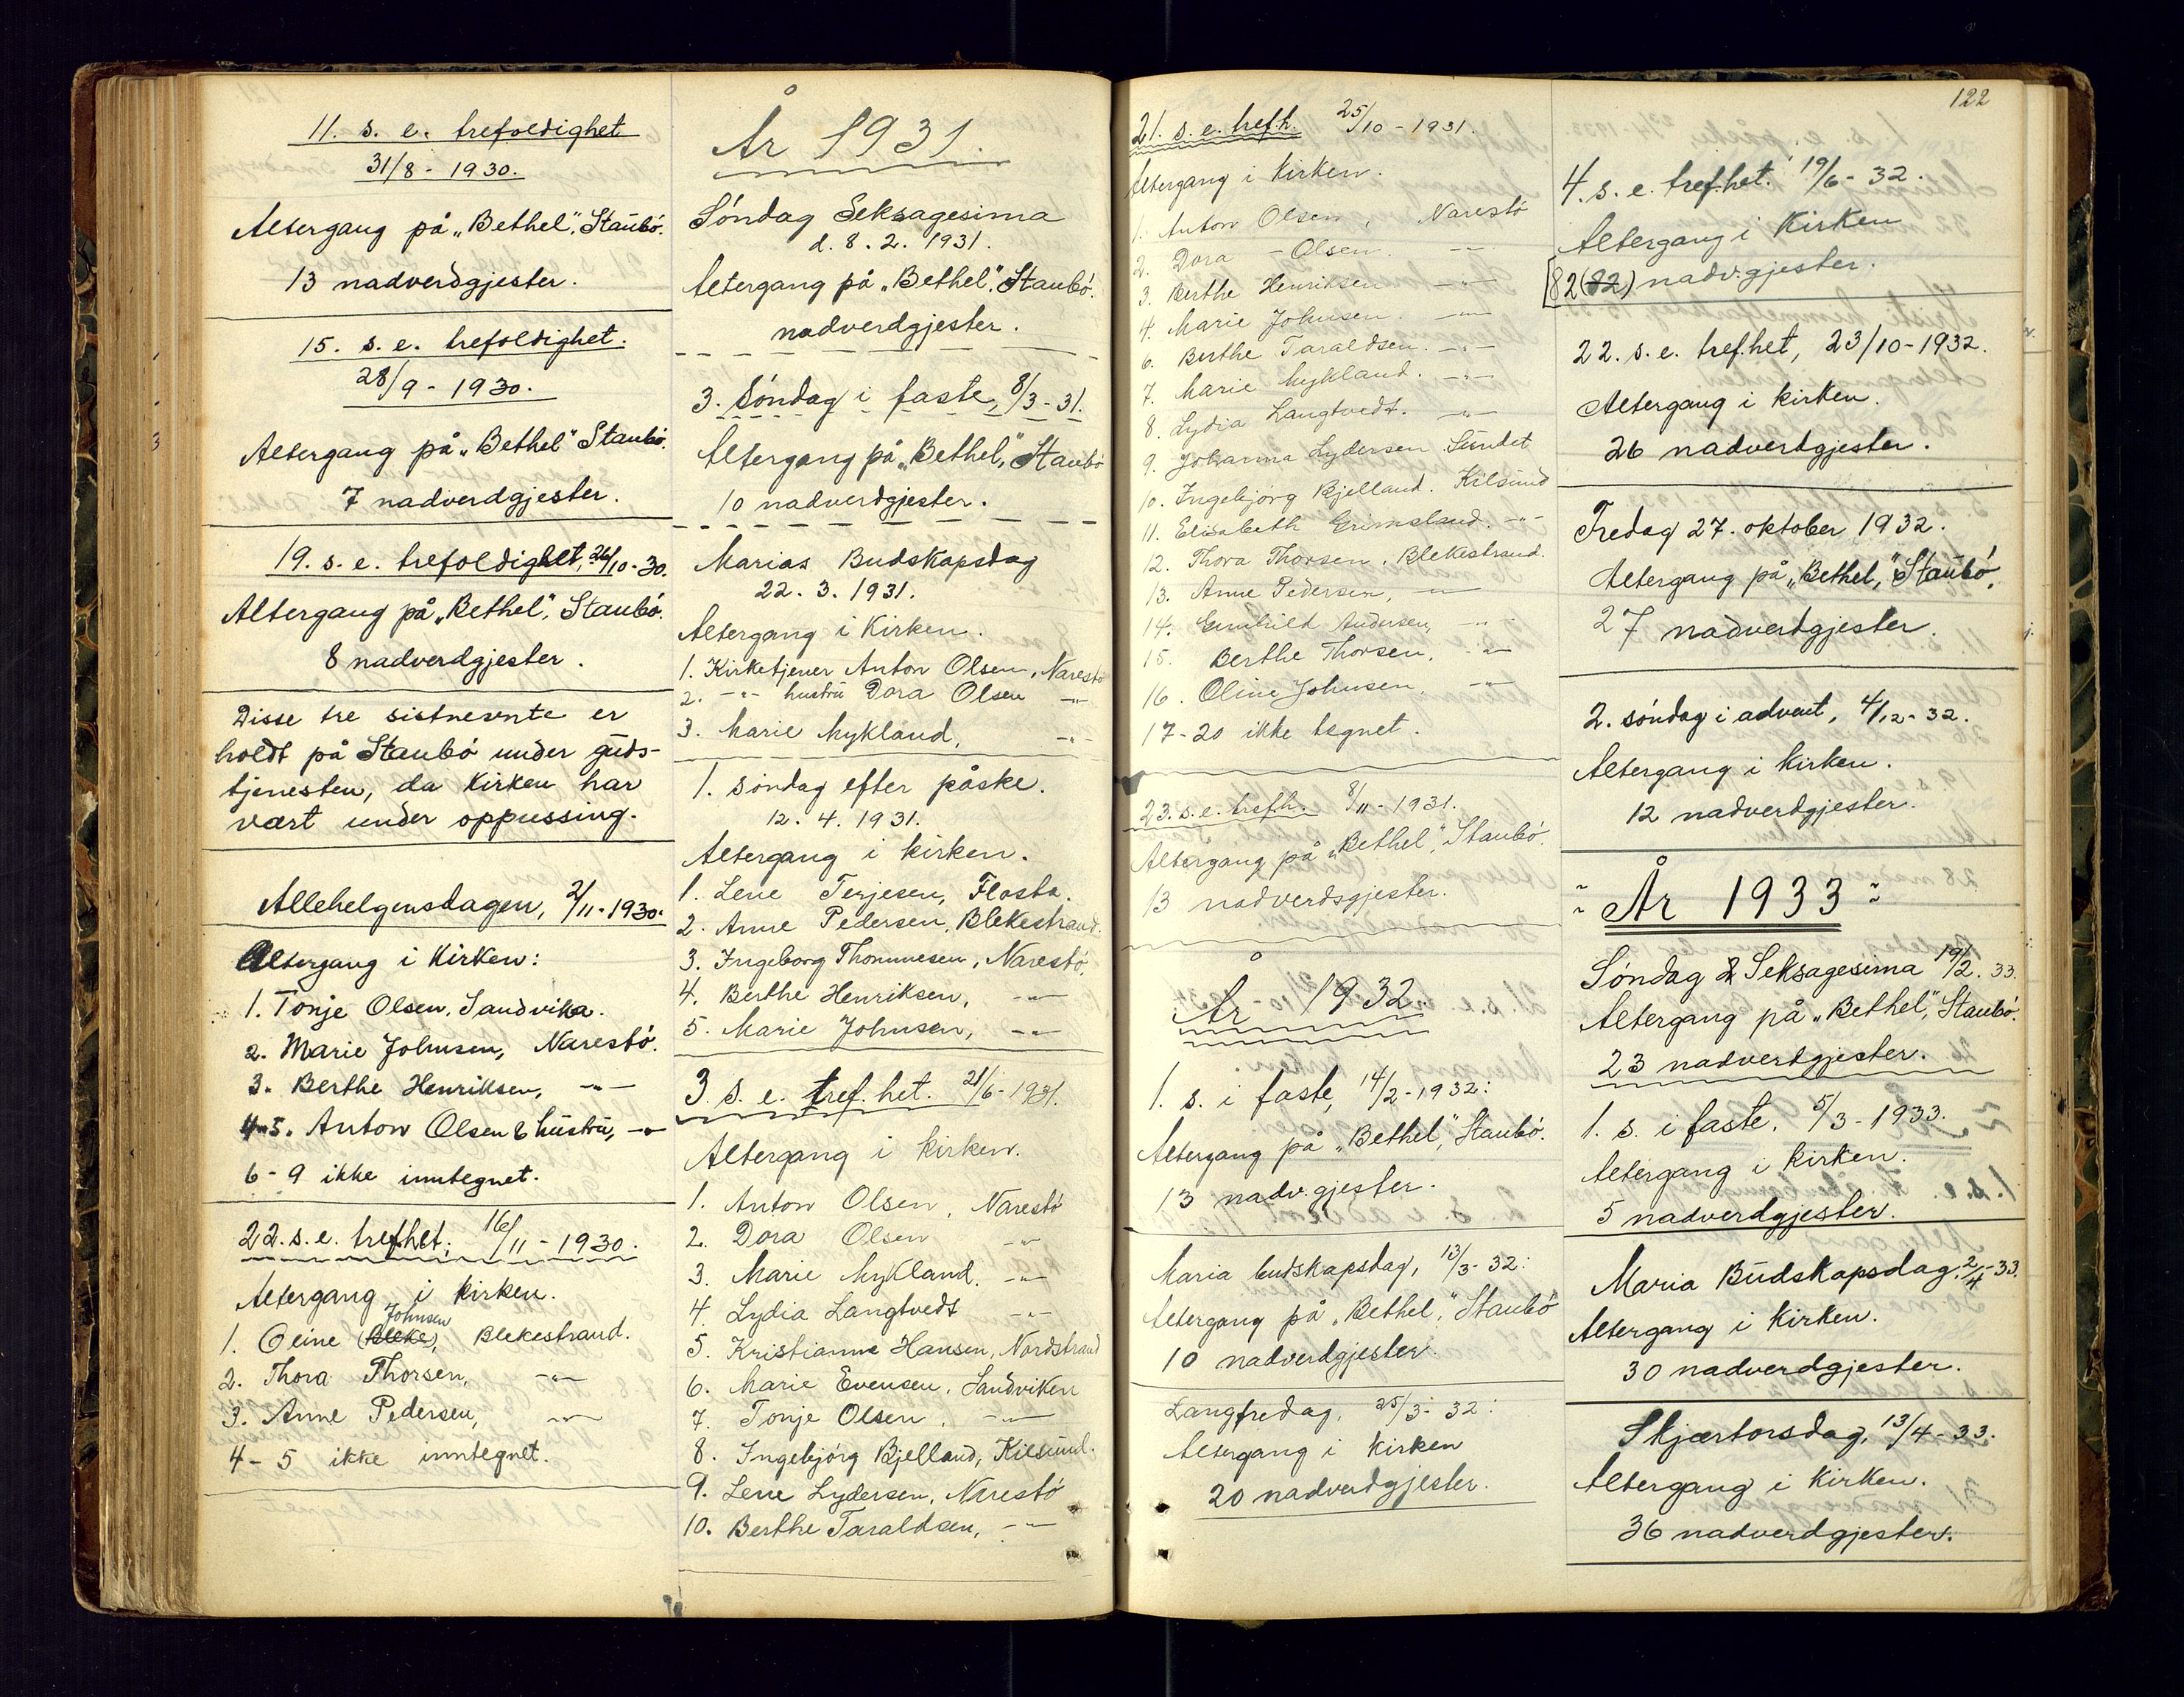 11. s. e. trefoldighet
31/8 - 1930.
Altergang på „Bethel”, Staubø.
13 nadverdgjester.
15. s. e. trefoldighet.
28/9 - 1930.
Altergang på „Bethel” Staubø.
7 nadverdgjester.
19. s. e. trefoldighet, 26/10-30.
Altergang på „Bethel”, Staubø.
8 nadverdgjester.
Disse tre sistnevnte er
holdt på Staubø under guds-
tjenesten, da kirken har
vært under oppussing.
Allehelgensdagen, 2/11-1930.
Altergang i kirken:
1. Tonje Olsen, Sandvika.
2. Marie Johnsen, Narestø.
3. Berthe Henriksen, -"-
4-5. Anton Olsen & hustru, -"-
6-9 ikke inntegnet.
22. s. e. trefhet. 16/11 - 1930.
Altergang i kirken.
Johnsen
1. Oline (Bleke), Blekestrand.
2. Thora Thorsen, -"-
3. Anne Pedersen, -"-
4-5 ikke inntegnet.
År 1931.
Søndag Seksagesima
d. 8. 2. 1931.
Altergang på „Bethel”, Staubø.
nadverdgjester.
3. Søndag i faste, 8/3-31.
Altergang på „Bethel,” Staubø
10 nadverdgjester.
Marias Budskapsdag
22. 3. 1931.
Altergang i Kirken.
1. Kirketjener Anton Olsen, Narestø
2. -"- hustru Dora Olsen -"-
3. Marie Mykland, -"-
1. søndag efter påske.
12. 4. 1931.
Altergang i kirken.
1. Lene Terjesen, Flosta.
2. Anne Pedersen, Blekestrand.
3. Ingeborg Thommesen, Narestø.
4. Berthe Henriksen, -"-
5. Marie Johnsen, -"-
3. s. e. tref.het. 21/6-1931.
Altergang i kirken.
1. Anton Olsen, Narestø
2. Dora Olsen -"-
3. Marie Mykland. -"-
4. Lydia Langtvedt -"-
5. Kristianne Hansen, Nordstrand
6. Marie Evensen, Sandviken
7. Tonje Olsen, -"-
8. Ingebjørg Bjelland, Kilsund.
9. Lene Lydersen, Narestø
10. Berthe Taraldsen, -"-
21. s. e. trefh. 25/10 - 1931.
Altergang i kirken.
1. Anton Olsen, Narestø
2. Dora - Olsen. -"-
3. Berthe Henriksen -"-
4. Marie Johnsen. -"-
6. Berthe Taraldsen. -"-
7. Marie Mykland. -"-
8. Lydia Langtvedt. -"-
9. Johanna Lydersen Sundet
10. Ingebjørg Bjelland. Kilsund
11. Elisabeth Grimsland. -"-
12. Thora Thorsen, Blekestrand.
13. Anne Pedersen, -"-
14. Gunhild Andersen, -"-
15. Berthe Thorsen, -"-
16. Oline Johnsen, -"-
17-20 ikke tegnet.
23. s. e. trefh. 8/11 - 1931.
Altergang på „Bethel”, Staubø.
13 nadverdsgjester.
År 1932.
1. s. i faste, 14/2-1932:
Altergang på „Bethel”, Staubø.
13 nadv.gjester.
Maria budskapsdag, 13/3-32:
Altergang på „Bethel”, Staubø
10 nadverdgjester.
Langfredag, 25/3-32:
Altergang i kirken
20 nadverdgjester.
122
4. s. e. tref.het. 19/6-32.
Altergang i Kirken
[82(82) nadv.gjester.
22. s. e. tref.het, 23/10-1932.
Altergang i kirken.
26 nadverdgjester.
Fredag 27. oktober 1932.
Altergang på „Bethel,” Staubø.
27 nadverdgjester.
2. søndag i advent, 4/12-32.
Altergang i kirken.
12 nadverdgjester.
År 1933
Søndag Seksagesima 19/2. 33.
Altergang på „Bethel”, Staubø.
23 nadverdgjester.
1. s. i faste, 5/3-1933.
Altergang i kirken.
5 nadverdgjester.
Maria Budskapsdag, 2/4-33.
Altergang i kirken.
30 nadverdgjester.
Skjærtorsdag, 13/4-33.
Altergang i kirken.
36 nadverdgjester.